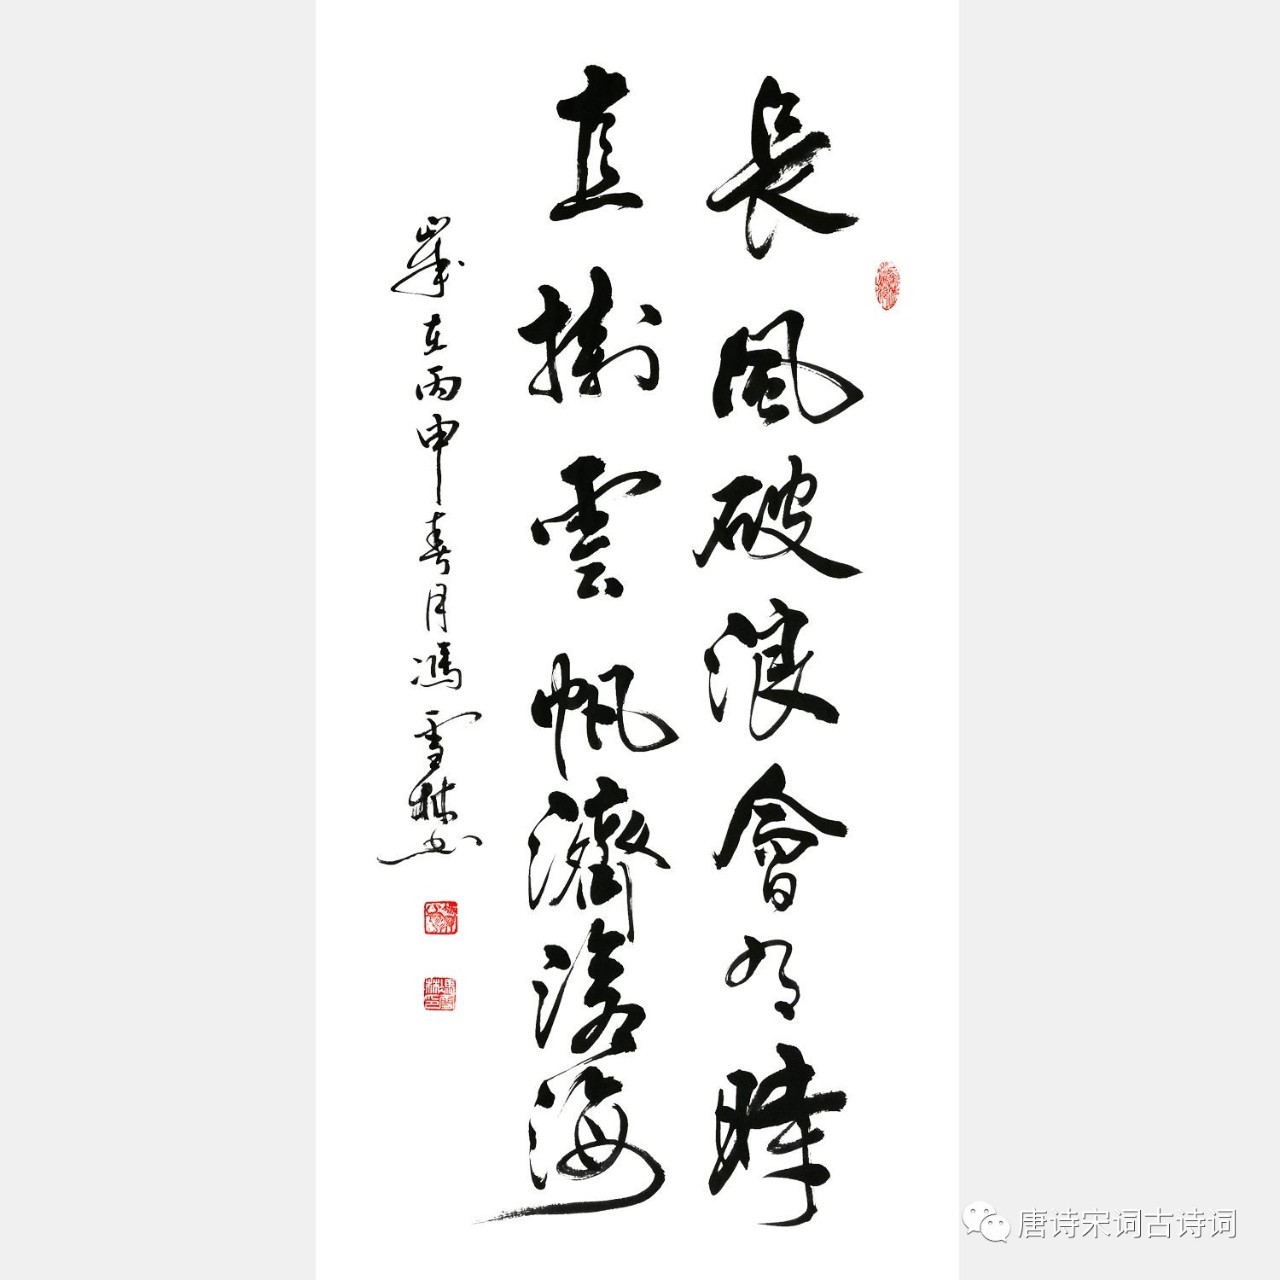 長風破浪會有時
直掛雲帆濟滄海
歲在丙申春月馮雪林書
唐诗宋词古诗词